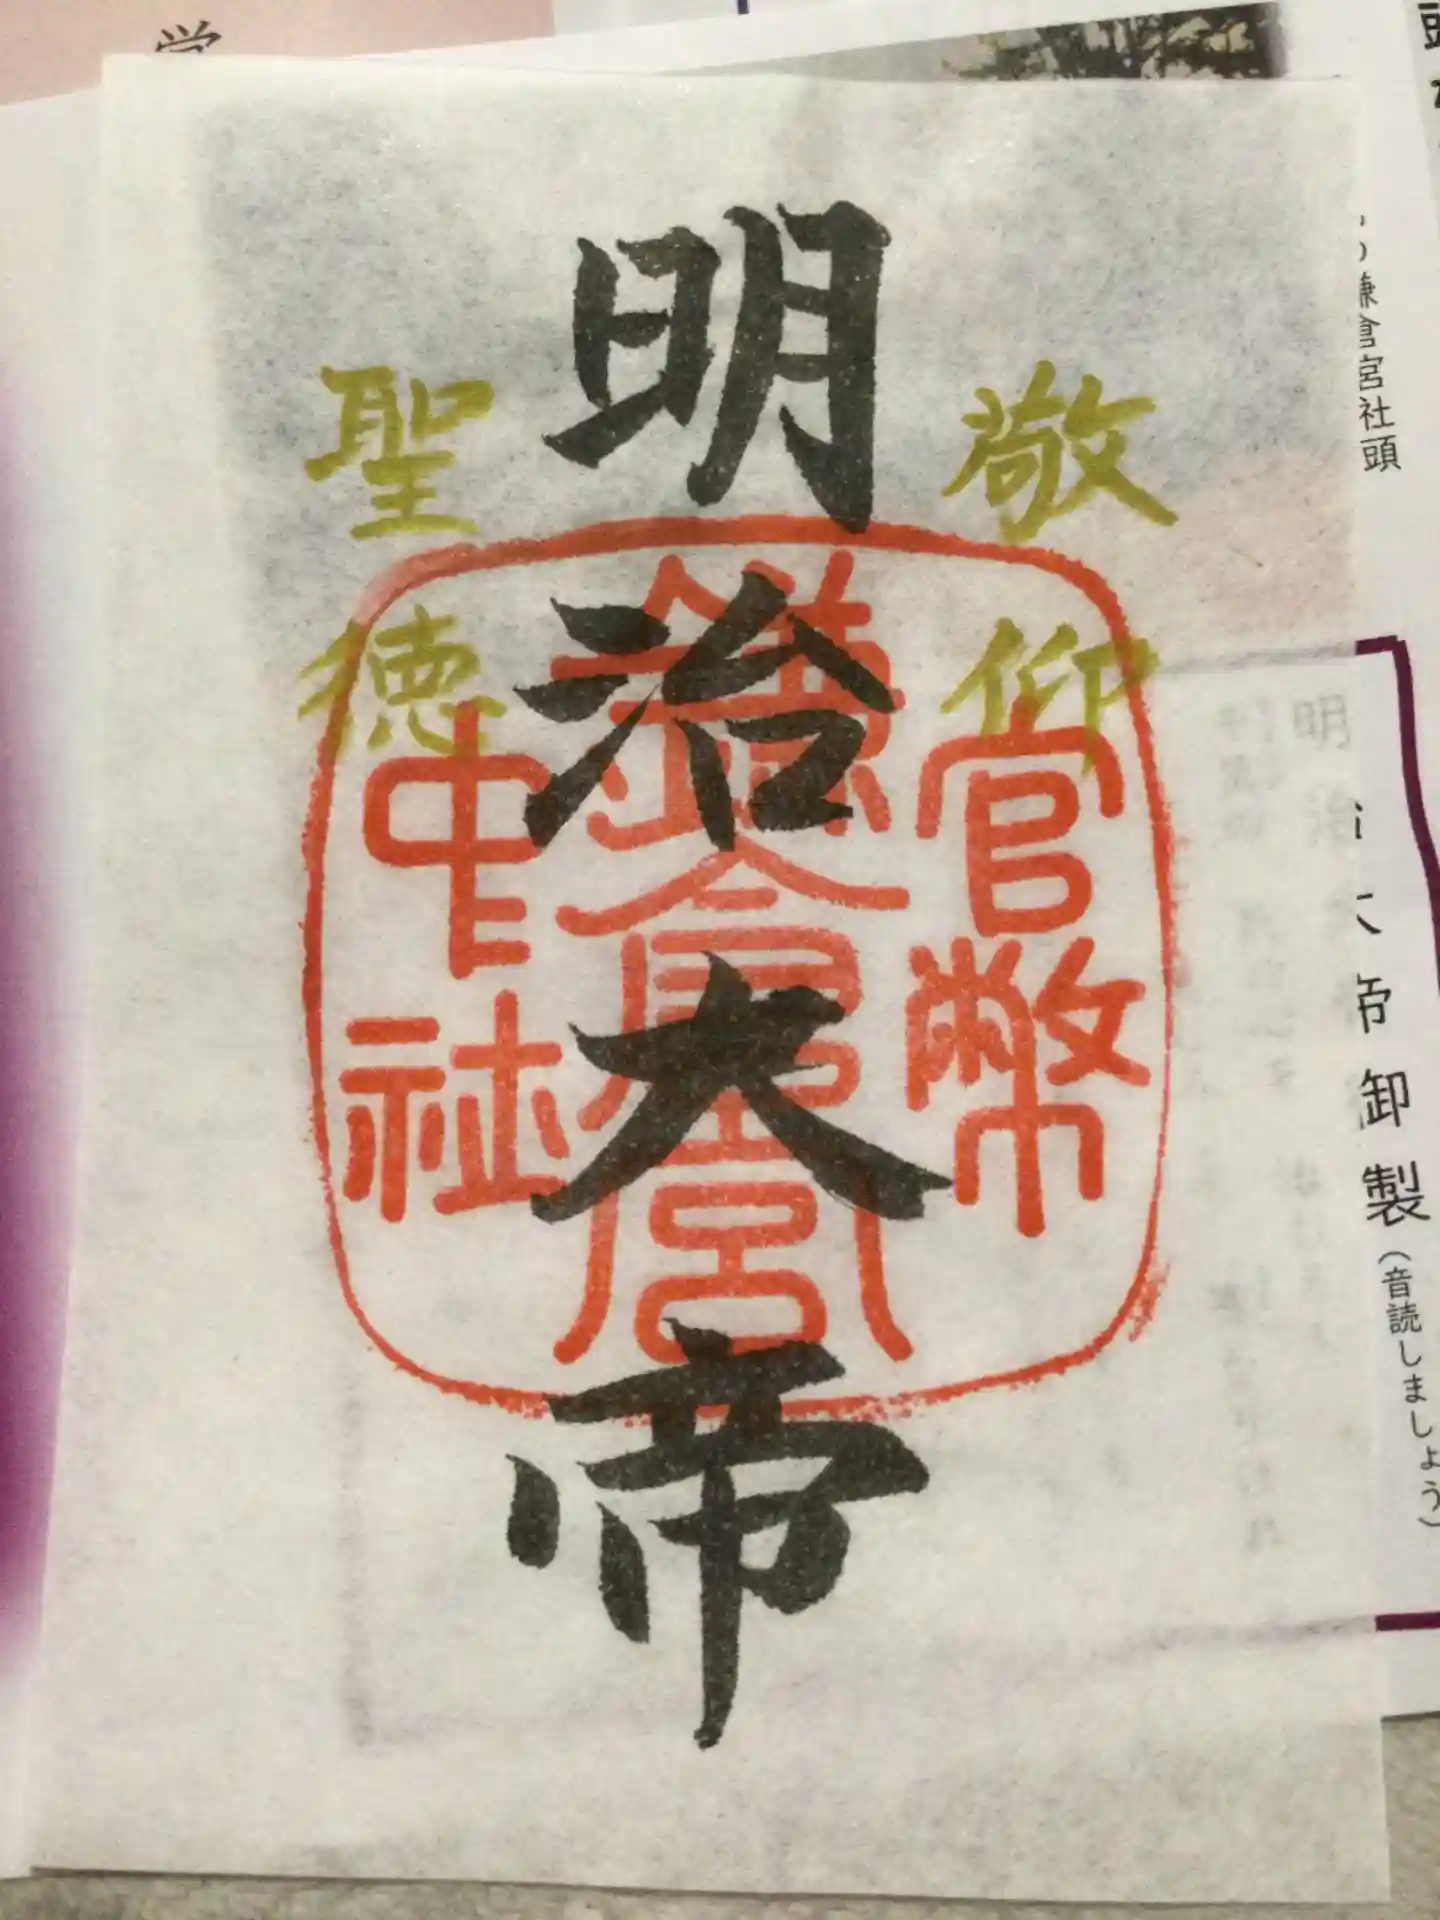 敬仰
明治大帝
聖徳
官幣
鎌倉宮
中社
鎌倉宮社頭
御製(音読しましょう)